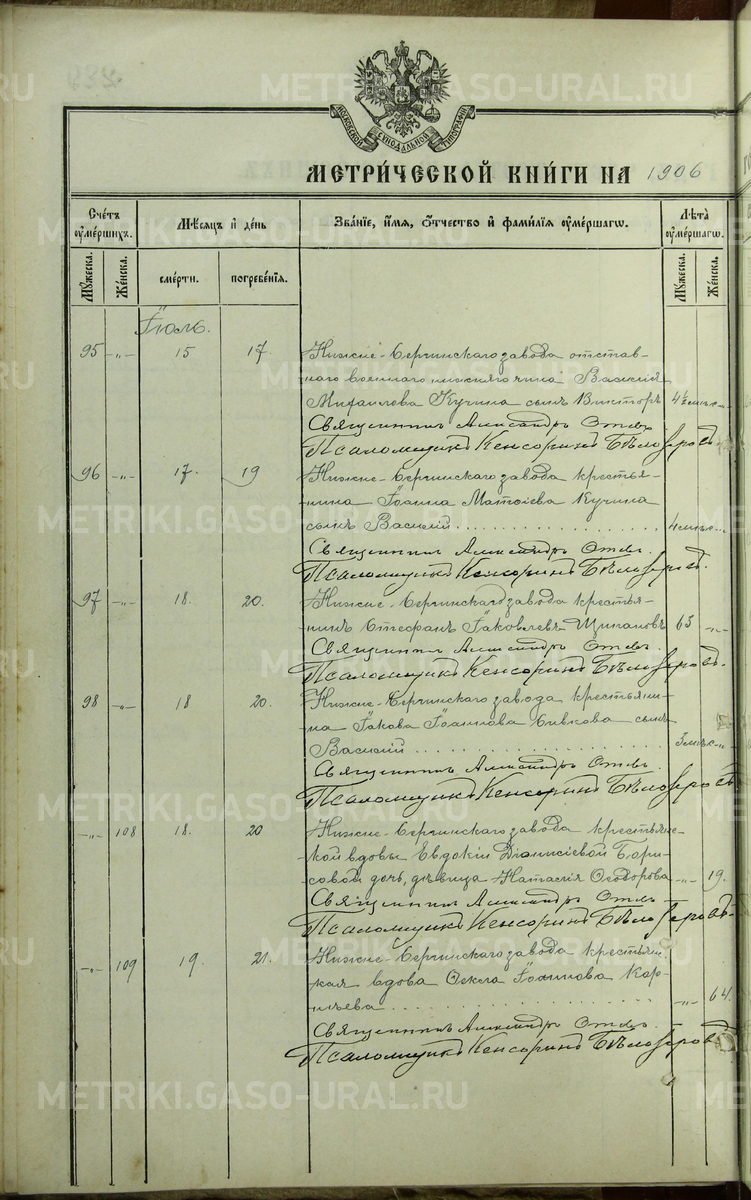 МОСКОВСКОЙ СѴНОДАЛЬНОЙ ТИПОГРАФІИ
МЕТРИ́ЧЕСКОЙ КНИ́ГИ НА 1906
Сче́тъ ᲂуме́ршихъ.
Мѣсяцъ и҆ де́нь
Зва́нїе, и҆́мя, ѻ҆́тчество и҆ фами́лїя ᲂуме́ршагѡ.
Лѣ́та ᲂуме́ршагѡ.
Мꙋ́жеска.
Же́нска.
сме́рти.
погребе́нїя.
Мꙋ́жеска.
Же́нска.
Іюль.
95 -„- 15 17. Нижне-Сергинскаго завода отстав-
наго военнаго нижняго чина Василія
Михаилова Кучина сынъ Викторъ 4½ мѣс. -„-
Священникъ Александръ
Псаломщикъ Кенсоринъ Бѣлозеровъ.
96 -„- 17. 19 Нижне-Сергинскаго завода крестья-
нина Іоанна Матѳіева Кучина
сынъ Василій 4 мѣс. -„-
Священникъ Александръ
Псаломщикъ Кенсоринъ Бѣлозеровъ.
97 -„- 18. 20. Нижне-Сергинскаго завода крестья-
нинъ Стефанъ Іаковлевъ Щипановъ 63 -„-
Священникъ Александръ
Псаломщикъ Кенсоринъ Бѣлозеровъ.
98 -„- 18 20. Нижне-Сергинскаго завода крестьяни-
на Іакова Іоаннова Сивкова сынъ
Василій 3 мѣс. -„-
Священникъ Александръ
Псаломщикъ Кенсоринъ Бѣлозеровъ
-„- 108 18. 20 Нижне-Сергинскаго завода крестьянс-
кой вдовы Евдокіи Діонисіевой Бори-
совой дочь, дѣвица Наталія Ѳеодорова -„- 19.
Священникъ Александръ
Псаломщикъ Кенсоринъ Бѣлозеровъ.
-„- 109 19. 21. Нижне-Сергинскаго завода крестьянс-
кая вдова Ѳекла Іоаннова Кор-
нѣева -„- 64.
Священникъ Александръ
Псаломщикъ Кенсоринъ Бѣлозеровъ
METRIKI.GASO-URAL.RU